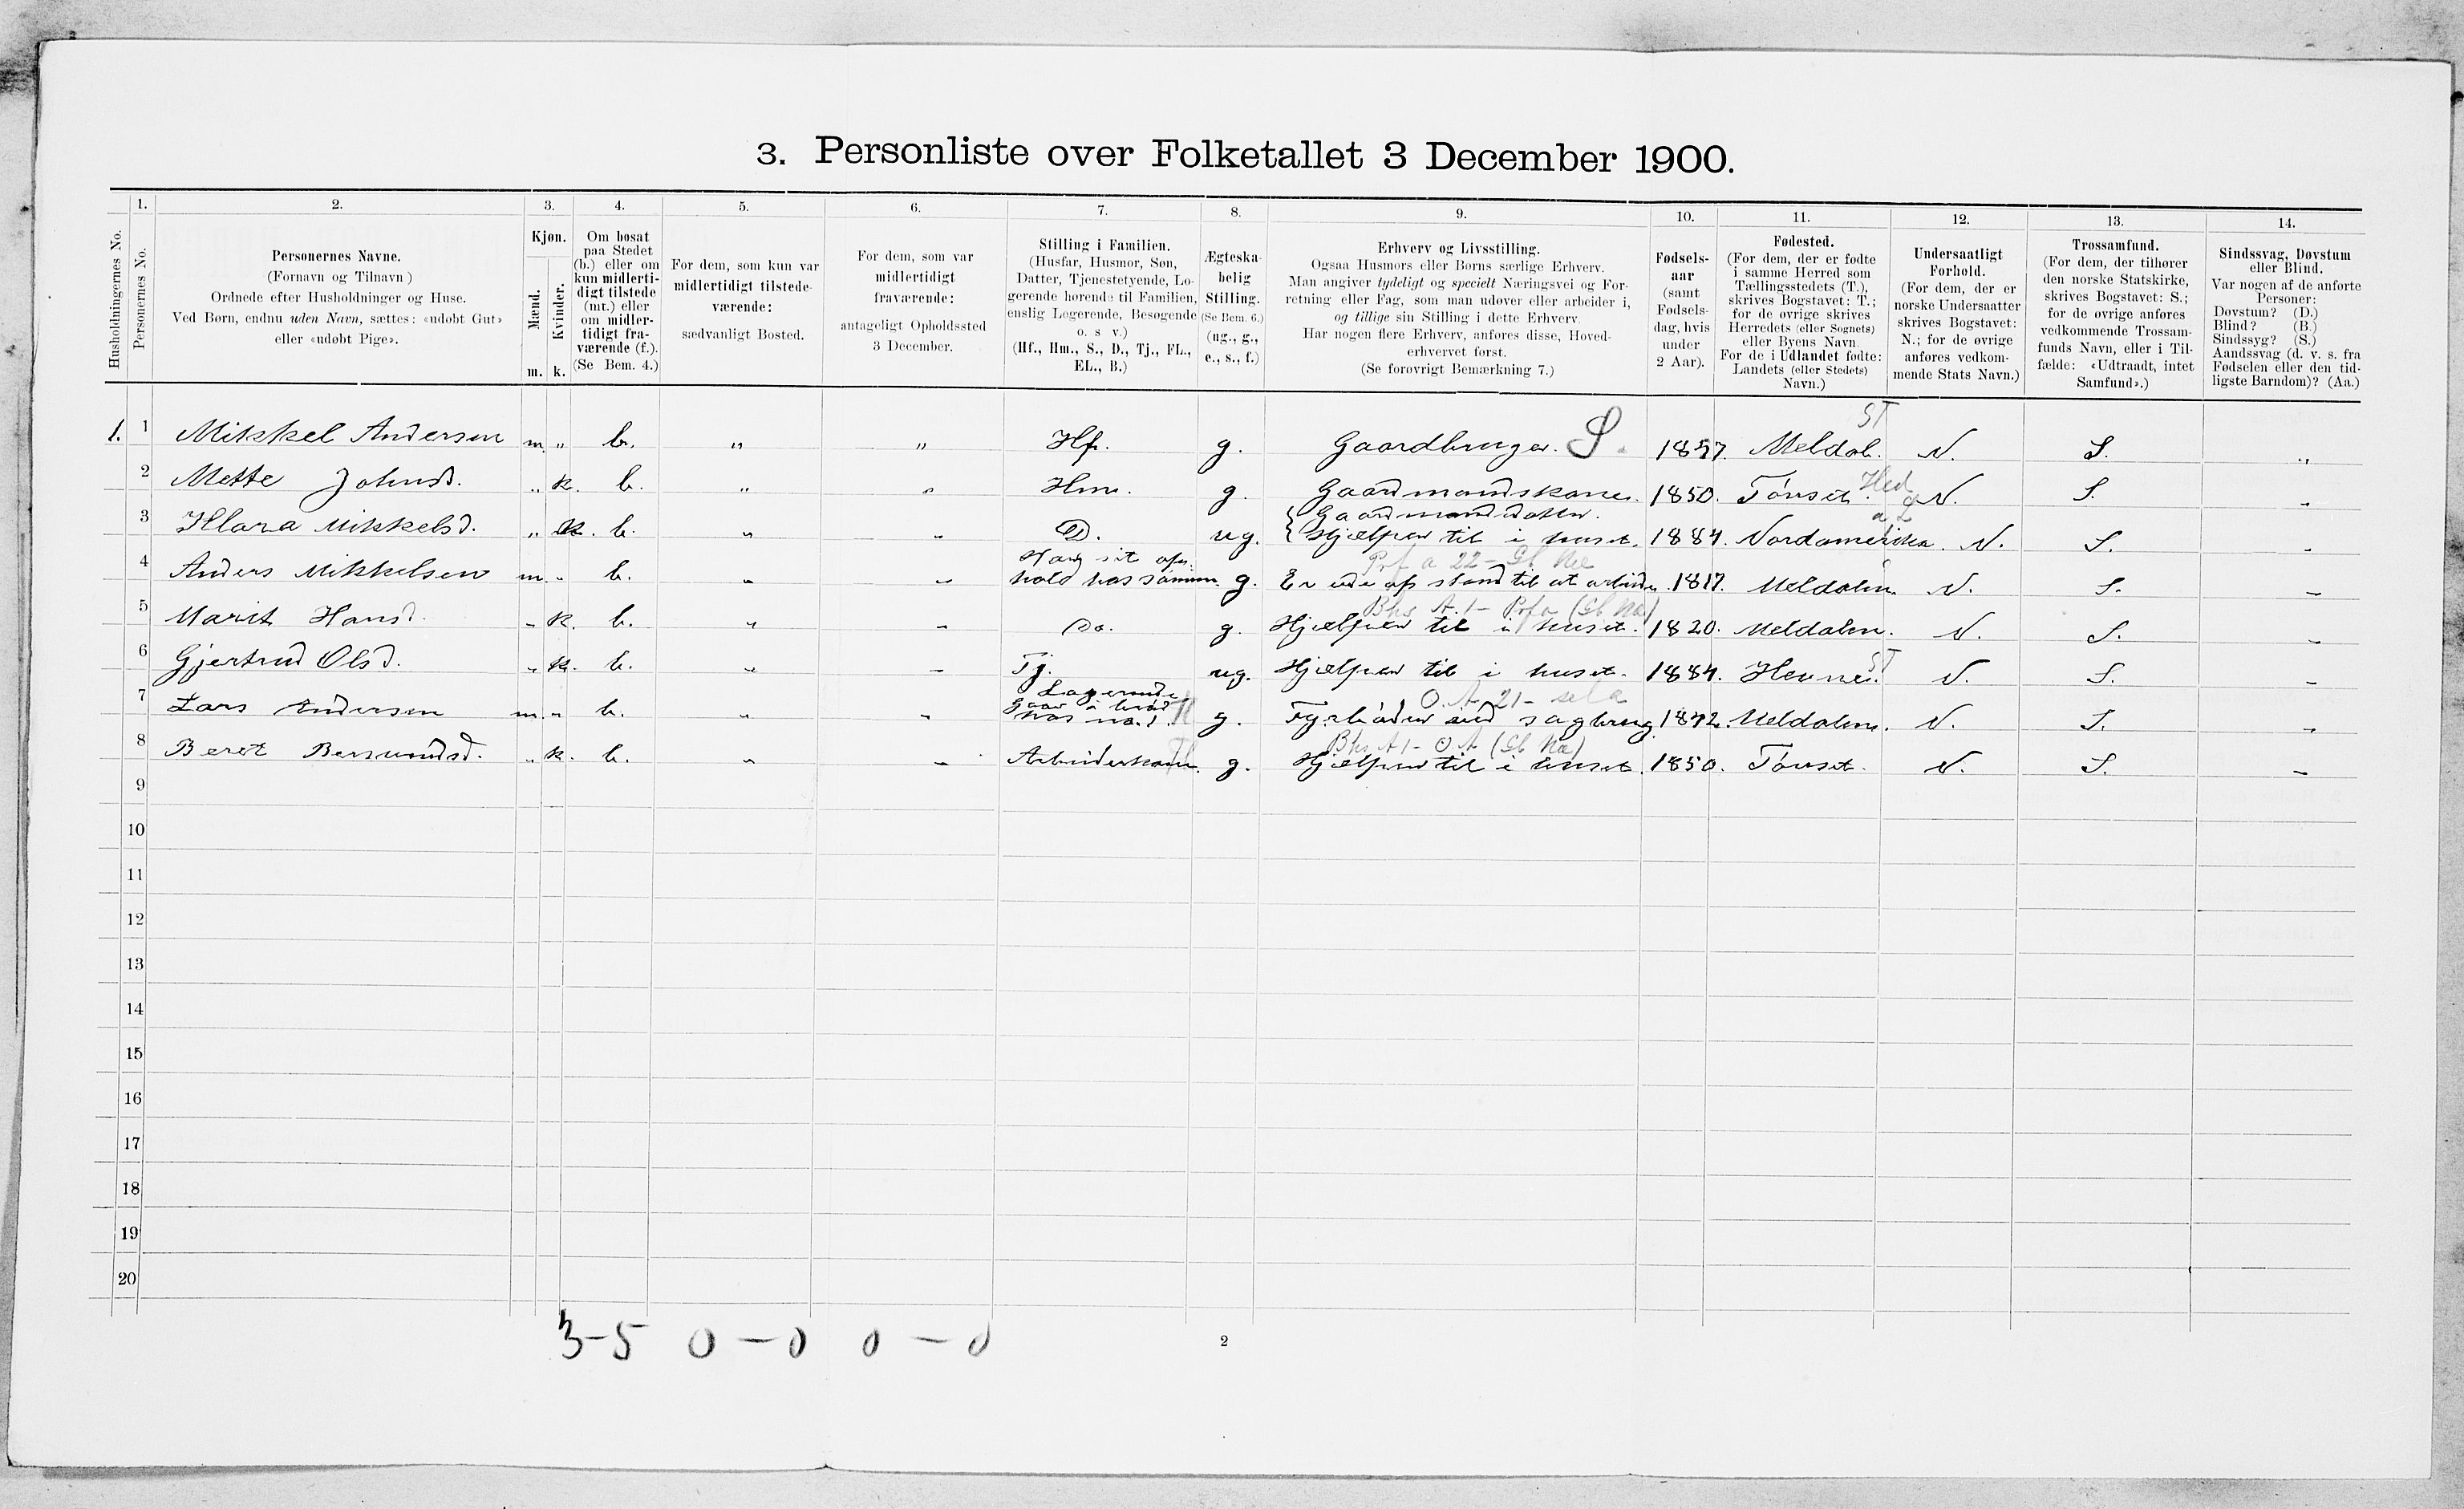 3. Personliste over Folketallet 3 December 1900.
1. 2. 3. 4. 5. 6. 7. 8. 9. 10. 11. 12. 13. 14.
Husholdningernes No.
Personernes No.
Personernes Navne.
(Fornavn og Tilnavn)
Ordnede efter Husholdninger og Huse.
Ved Børn, endnu uden Navn, sættes: «udøbt Gut»
eller «udøbt Pige».
Kjøn.
Mænd.
Kvinder.
m. k.
Om bosat
paa Stedet
(b.) eller om
kun midlerti-
digt tilstede
(mt.) eller
om midler-
tidigt fra-
værende (f.).
(Se Bem. 4.)
For dem, som kun var
midlertidigt tilstede-
værende:
sædvanligt Bosted.
For dem, som var
midlertidigt
fraværende:
antageligt Opholdssted
3 December.
Stilling i Familien.
(Husfar, Husmor, Søn,
Datter, Tjenestetyende, Lo-
gerende hørende til Familien,
enslig Logerende, Besøgende
o. s v.)
(Hf., Hm., S., D., Tj., FL.,
EL., B.)
Ægteska-
belig
Stilling.
(Se Bem. 6.)
(ug., g.,
e., s., f.)
Erhverv og Livsstilling.
Ogsaa Husmors eller Børns særlige Erhverv.
Man angiver tydeligt og specielt Næringsvei og For-
retning eller Fag, som man udøver eller arbeider i,
og tillige sin Stilling i dette Erhverv.
Har nogen flere Erhverv, anføres disse, Hoved-
erhvervet først.
(Se forøvrigt Bemærkning 7.)
Fødsels-
aar
(samt
Fødsels-
dag, hvis
under
2 Aar).
Fødested.
(For dem, der er fødte
i samme Herred som
Tællingsstedets (T.),
skrives Bogstavet: T.;
for de øvrige skrives
Herredets (eller Sognets)
eller Byens Navn.
For de i Udlandet fødte:
Landets (eller Stedets)
Navn.)
Undersaatligt
Forhold.
(For dem, der er
norske Undersaatter
skrives Bogstavet:
N.; for de øvrige
anføres vedkom-
mende Stats Navn.)
Trossamfund.
(For dem, der tilhører
den norske Statskirke,
skrives Bogstavet: S.;
for de øvrige anføres
vedkommende Trossam-
funds Navn, eller i Til-
fælde: «Udtraadt, intet
Samfund».)
Sindssvag, Døvstum
eller Blind.
Var nogen af de anførte
Personer:
Døvstum? (D.)
Blind? (B.)
Sindssyg? (S.)
Aandssvag (d. v. s. fra
Fødselen eller den tid-
ligste Barndom)? (Aa.)
ST
1. 1 Mikkel Andersen m. " b. " " Hf. g. Gaardbruger. S. 1857. Meldal. N. S. "
Hed
2 Mette Johnsd. " k. b. " " Hm. g. Gaardmandskone. 1850. Tönset. N. S. "
Gaardmandsdatter.
3 Klara Mikkelsd. " k. b. " " D. ug. Hjælper til i huset. 1884. Nordamerika. N. S. "
Har sit op-
4 Anders Mikkelsen m. " b. " " hold hos sønnen. g. Er ude af stand til at arbeide. 1817. Meldalen. N. S. "
5 Marit Hansd. " k. b. " " Do. g. Hjælper til i huset. 1820. Meldalen. N. S. "
ST
6 Gjertrud Olsd. " k. b. " " Tj. ug. Hjælper til i huset. 1884. Hevne. N. S. "
Logerende
7 Lars Andersen m. " b. " " hos no. 1. g. Fyrbøder ved sagbrug. 1842. Meldalen. N. S. "
8 Beret Bersvendsd. " k. b. " " Arbeiderkone. g. Hjælper til i huset. 1850. Tönset. N. S. "
9
10
11
12
13
14
15
16
17
18
19
20
3-5 0-0 0-0
2